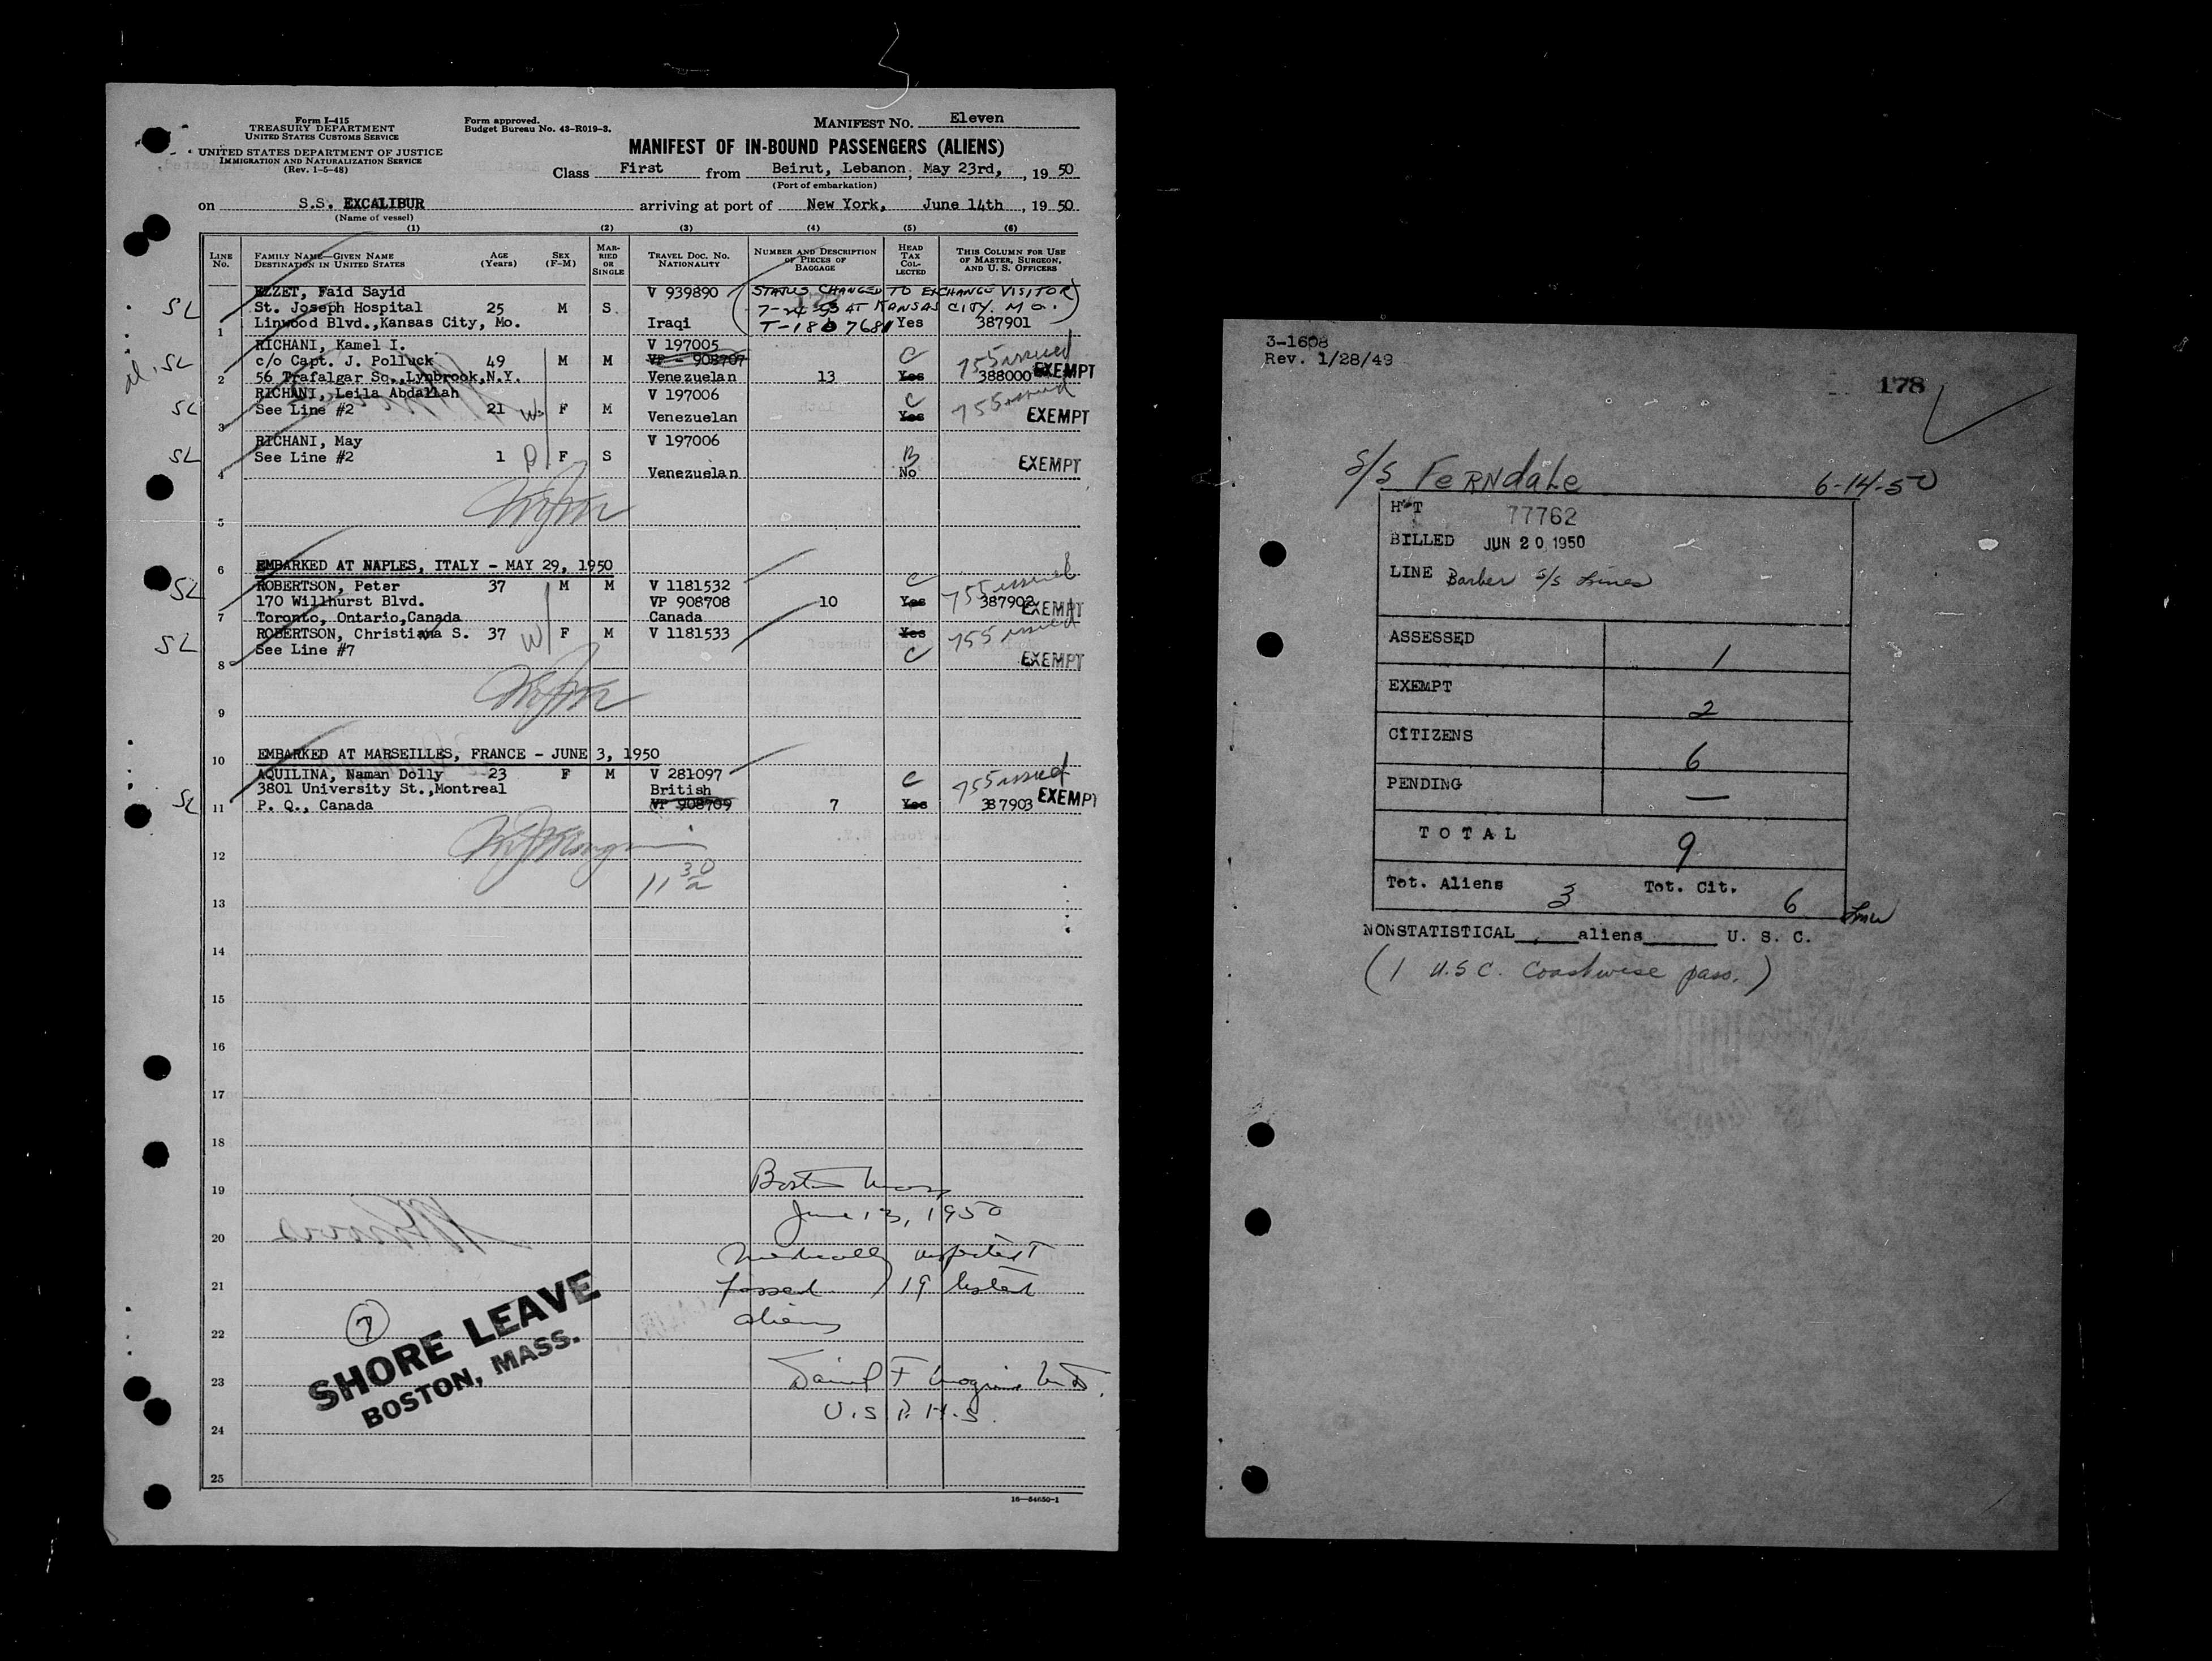 Form I-415
TREASURY DEPARTMENT
UNITED STATES CUSTOMS SERVICE
UNITED STATES DEPARTMENT OF JUSTICE
IMMIGRATION AND NATURALIZATION SERVICE
(Rev. 1-5-48)
Form approved.
Budget Bureau No. 43-R019-3.
MANIFEST NO. Eleven
MANIFEST OF IN-BOUND PASSENGERS (ALIENS)
Class First from Beirut, Lebanon, May 23rd, , 19 50
(Port of embarkation)
on S.S. EXCALIBUR arriving at port of New York, June 14th , 19 50
(Name of vessel)
(1) (2) (3) (4) (5) (6)
LINE No. FAMILY NAME—GIVEN NAME DESTINATION IN UNITED STATES AGE (Years) SEX (F-M) MARRIED OR SINGLE TRAVEL DOC. NO. NATIONALITY NUMBER AND DESCRIPTION OF PIECES OF BAGGAGE HEAD TAX COLLECTED THIS COLUMN FOR USE OF MASTER, SURGEON, AND U. S. OFFICERS
EZZET, Faid Sayid V 939890 (STATUS CHANGED TO EXCHANGE VISITOR)
SL St. Joseph Hospital 25 M S 7-24-53 AT KANSAS CITY. MO.
1 Linwood Blvd.,Kansas City, Mo. Iraqi T-1867681 Yes 387901
RICHANI, Kamel I. V 197005
SL c/o Capt. J. Polluck 49 M M VP - 908707 C 755 issued
2 56 Trafalgar Sq.,Lynbrook,N.Y. Venezuelan 13 Yes 388000 EXEMPT
RICHANI, Leila Abdallah V 197006 C
SL See Line #2 21 W F M Venezuelan Yes 755 issued EXEMPT
3
RICHANI, May V 197006
SL See Line #2 1 D F S B EXEMPT
4 Venezuelan No
5
6 EMBARKED AT NAPLES, ITALY - MAY 29, 1950
SL ROBERTSON, Peter 37 M M V 1181532 C 755 issued
170 Willhurst Blvd. VP 908708 10 Yes 387902 EXEMPT
7 Toronto, Ontario,Canada Canada
SL ROBERTSON, Christiana S. 37 W F M V 1181533 Yes 755 issued
8 See Line #7 C EXEMPT
9
10 EMBARKED AT MARSEILLES, FRANCE - JUNE 3, 1950
AQUILINA, Naman Dolly 23 F M V 281097 C 755 issued
3801 University St.,Montreal British
SL 11 P. Q., Canada VP 908709 7 Yes 387903 EXEMPT
12
11 30 a
13
14
15
16
17
18
19 Boston Mass
June 13, 1950
20
medically inspected
21 passed 19 listed
22 aliens
7
SHORE LEAVE
BOSTON, MASS.
23 Daniel F
U.S.P.H.S.
24
25
16—54650-1
3-1608
Rev. 1/28/49
178
S/S FERNDALE 6-14-50
H T 77762
BILLED JUN 20 1950
LINE Barber S/S Lines
ASSESSED 1
EXEMPT 2
CITIZENS 6
PENDING —
TOTAL 9
Tot. Aliens 3 Tot. Cit. 6
NONSTATISTICAL aliens U. S. C.
(1 U.S.C. Coastwise pass.)